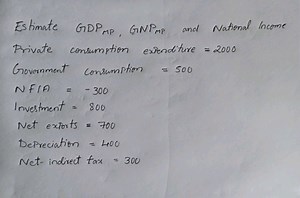 Estimate GDP MP, GNP MP, and National Income
Private consumption expenditure = 2000
Government consumption = 500
NFIA = -300
Investment = 800
Net exports = 700
Depreciation = 400
Net-indirect tax = 300